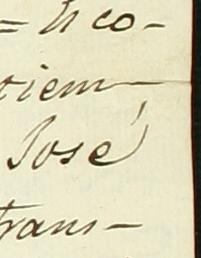 = Es co-
tiem-
José
trans-